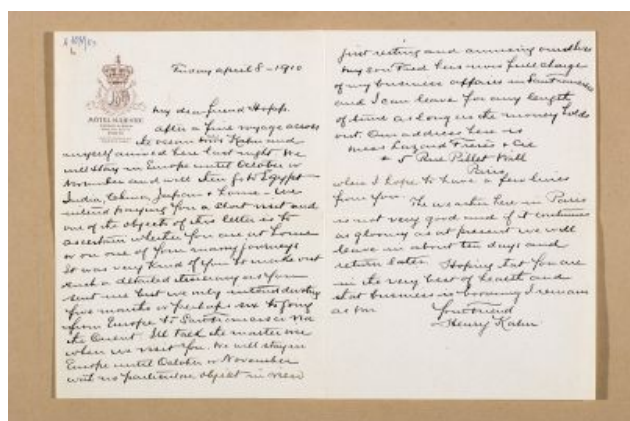 Friday April 8 - 1910
HOTEL MAJESTIC
My dear friend Hopp.
After a fine voyage across
the ocean Mrs Kahn and
myself arrived here last night. We
will stay in Europe until October or
November and will then go to Egypt
India, China, Japan & home - We
intend paying you a short visit and
one of the objects of this letter is to
ascertain whether you are at home
or on one of your many journeys
It was very kind of you to make out
such a detailed itinerary as you
sent me but we only intend devoting
five months or perhaps six to going
from Europe to San Francisco via
the Orient. I'll talk the matter over
when we visit you. We will stay in
Europe until October or November
with no particular object in view
just resting and amusing ourselves
My son Fred has now full charge
of my business affairs in San Francisco
and I can leave for any length
of time as long as the money holds
out. Our address here is
Mess Lazard Freres & Cie
5 Rue Pillet Will
Paris
where I hope to have a few lines
from you. The weather here in Paris
is not very good and if it continues
as gloomy as at present we will
leave in about ten days and
return later. Hoping that you are
in the very best of health and
that business is booming I remain
as ever
Your friend
Henry Kahn